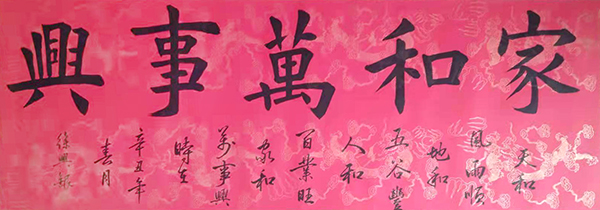 家和萬事興
天和
風雨順
地和
五谷豐
人和
百業旺
家和
萬事興
時在
辛丑年
春月